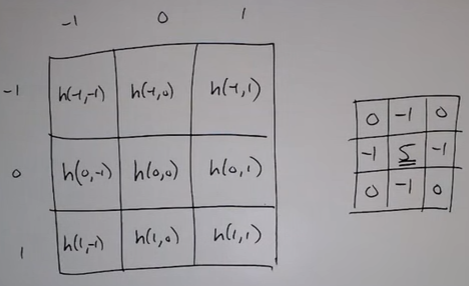 -1 0 1
-1 h(-1,-1) h(-1,0) h(-1,1)
0 h(0,-1) h(0,0) h(0,1)
1 h(1,-1) h(1,0) h(1,1)
0 -1 0
-1 5 -1
0 -1 0